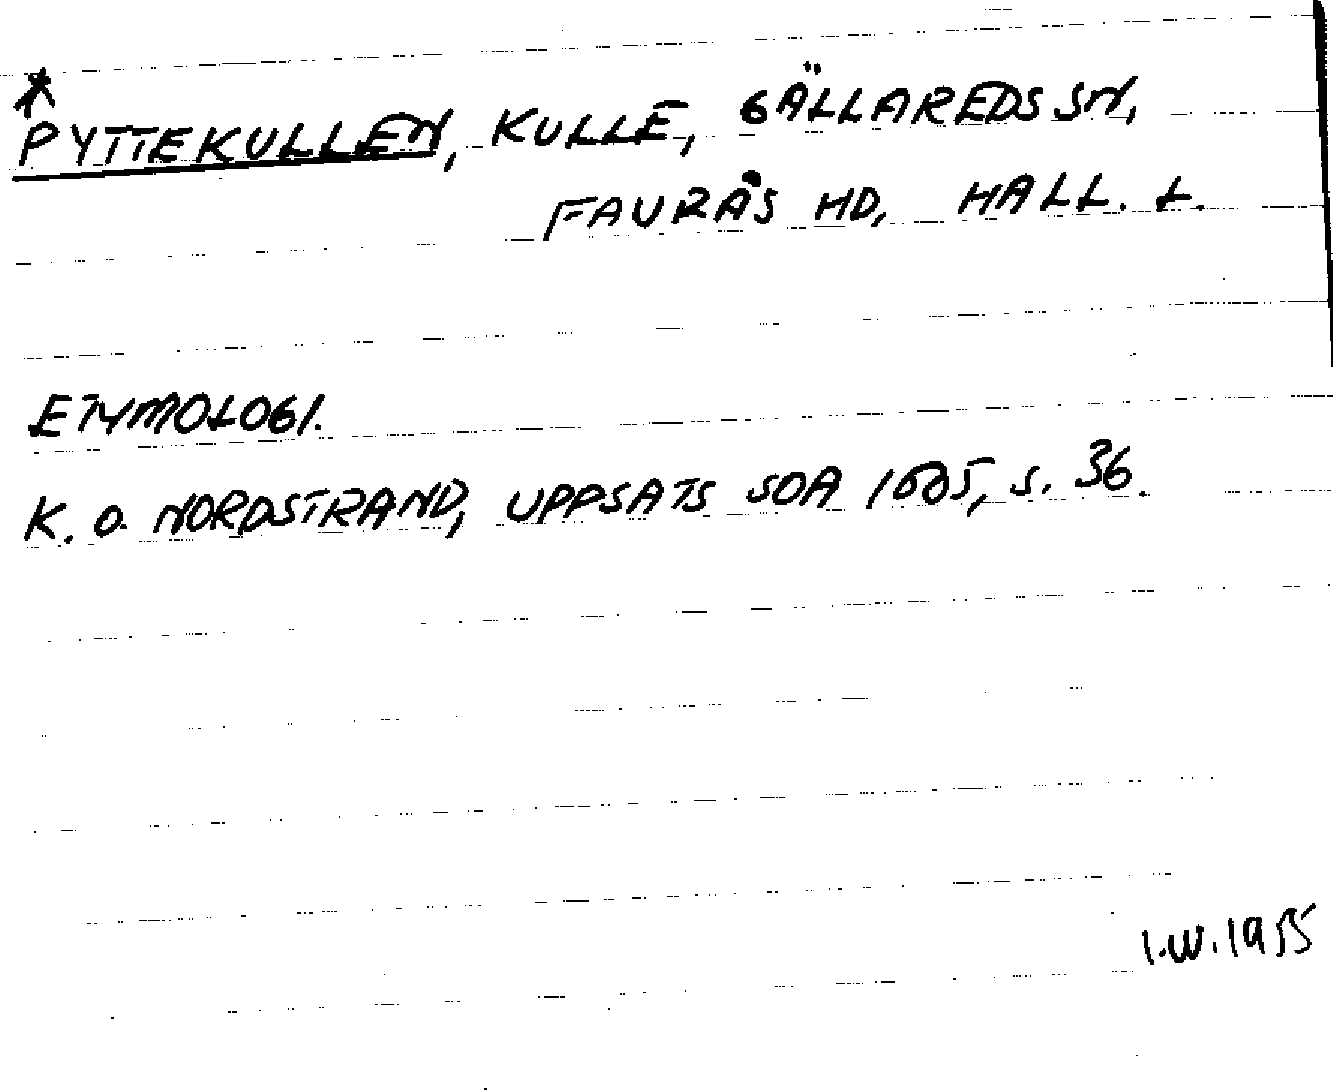 *
PYTTEKULLEN, KULLE, GÄLLAREDS SN,
FAURÅS HD, HALL. L.
ETYMOLOGI.
K. O. NORDSTRAND, UPPSATS SOA 1605, S. 36.
I.W. 1955